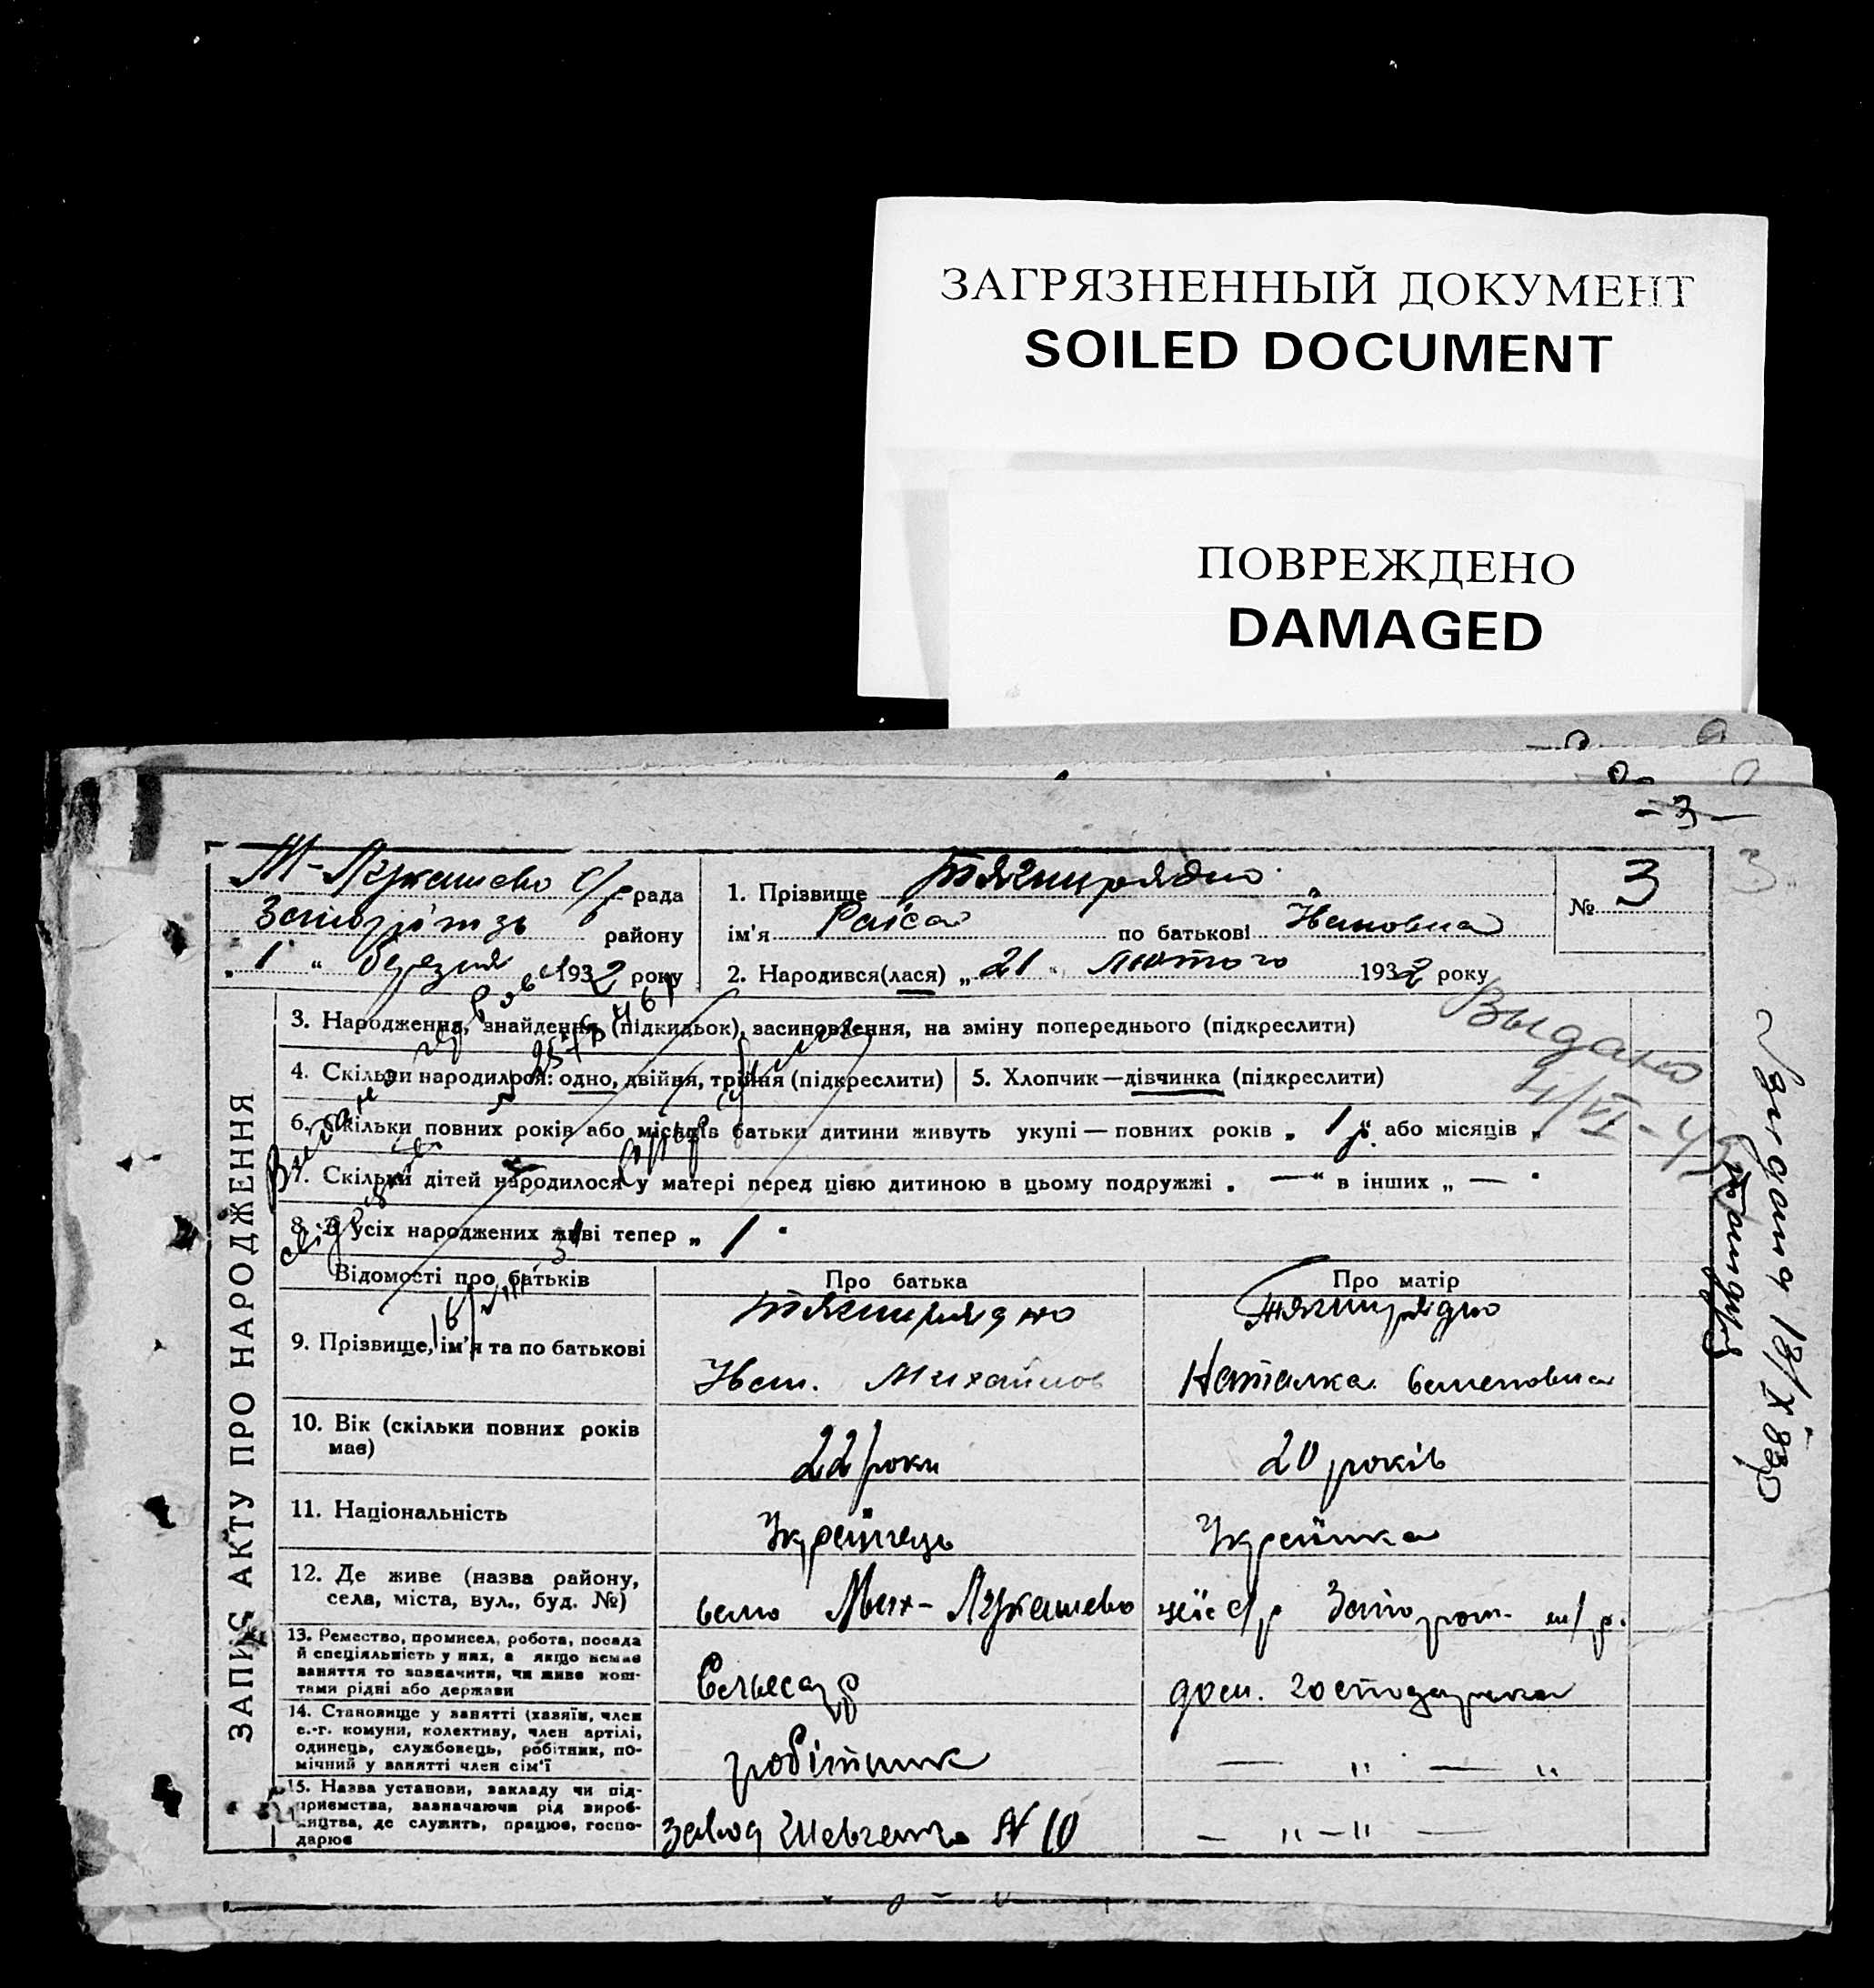 ЗАГРЯЗНЕННЫЙ ДОКУМЕНТ
SOILED DOCUMENT
ПОВРЕЖДЕНО
DAMAGED
-3-
3
ЗАПИС АКТУ ПРО НАРОДЖЕННЯ
М-Лукашево с/р рада
району
„ 1 " березня 1932 року
1. Прізвище Тягнирядно
ім'я Раїса по батькові Івановна
2. Народився(лася) „ 21 " лютого 1932 року
№ 3
3. Народження, знайдення (підкидьок), засиновлення, на зміну попереднього (підкреслити)
4. Скільки народилося: одно, двійня, трійня (підкреслити)
5. Хлопчик—дівчинка (підкреслити)
6. Скільки повних років або місяців батьки дитини живуть укупі — повних років „ 1 р". або місяців „
7. Скільки дітей народилося у матері перед цією дитиною в цьому подружжі „ — " в інших „ — "
8. З усіх народжених живі тепер „ 1 "
Выдано
Видана 13/X 83р
Відомості про батьків
Про батька
Про матір
9. Прізвище, ім'я та по батькові
Тягнирядно
Іван. Михайлов
Тягнирядно
Наталка Семеновна
10. Вік (скільки повних років має)
22 роки
20 років
11. Національність
Українець
Українка
12. Де живе (назва району, села, міста, вул., буд. №)
село Мих-Лукашево
цієї с/р Запорож. м/р.
13. Ремество, промисел, робота, посада й спеціяльність у них, а якщо немає заняття то зазначити, чи живе коштами рідні або держави
Сльесар
дом. господарка
14. Становище у занятті (хазяїн, член с.-г. комуни, колективу, член артілі, одинець, службовець, робітник, помічний у занятті член сім'ї
робітник
— " — "
15. Назва установи, закладу чи підприємства, зазначаючи рід виробництва, де служить, працює, господарює
завод Шевченко N 10
— " — " —